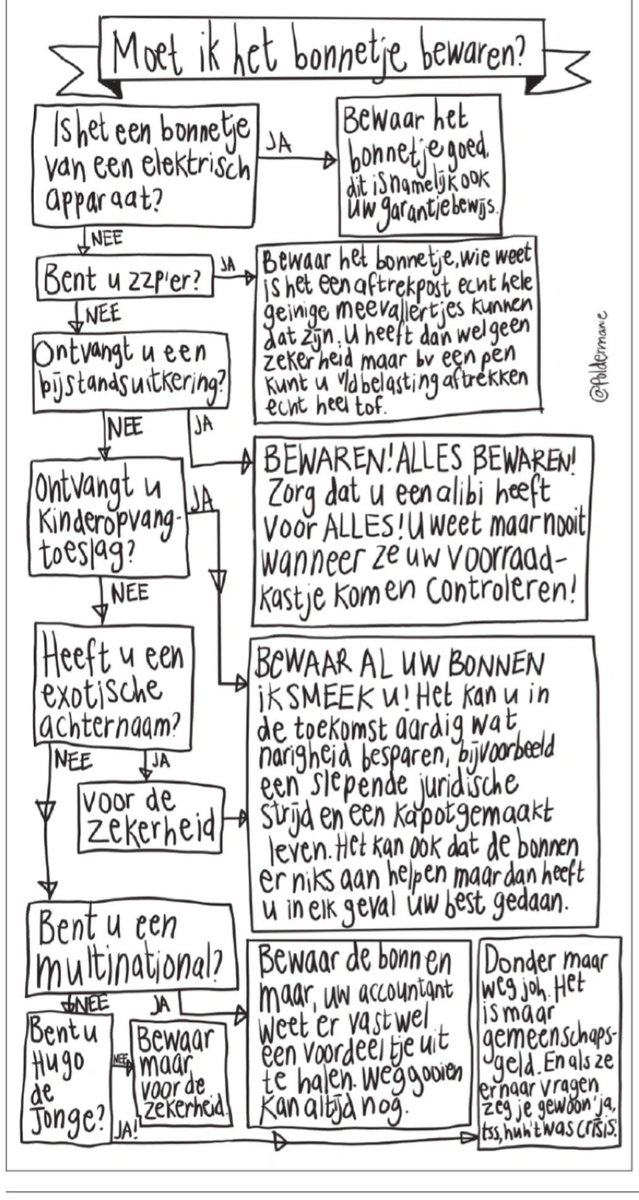 Moet ik het bonnetje bewaren?
Is het een bonnetje
van een elektrisch
apparaat?
JA
Bewaar het
bonnetje goed,
dit is namelijk ook
uw garantiebewijs.
NEE
Bent u zzp'er?
JA
Bewaar het bonnetje, wie weet
is het een aftrekpost echt hele
geinige meevallertjes kunnen
dat zijn. U heeft dan wel geen
zekerheid maar bv een pen
kunt u v/d belasting aftrekken
echt heel tof.
@foldermane
NEE
Ontvangt u een
bijstandsuitkering?
NEE
JA
BEWAREN! ALLES BEWAREN!
Zorg dat u een alibi heeft
voor ALLES! U weet maar nooit
wanneer ze uw voorraad-
kastje komen controleren!
Ontvangt u
kinderopvang-
toeslag?
JA
NEE
BEWAAR AL UW BONNEN
IK SMEEK U! Het kan u in
de toekomst aardig wat
narigheid besparen, bijvoorbeeld
een slepende juridische
strijd en een kapotgemaakt
leven. Het kan ook dat de bonnen
er niks aan helpen maar dan heeft
u in elk geval uw best gedaan.
Heeft u een
exotische
achternaam?
NEE
JA
voor de
zekerheid
Bent u een
multinational?
NEE
JA
Bewaar de bonnen
maar, uw accountant
weet er vast wel
een voordeeltje uit
te halen. Weggooien
kan altijd nog.
Bent u
Hugo
de
Jonge?
NEE
Bewaar
maar
voor de
zekerheid.
JA!
Donder maar
weg joh. Het
is maar
gemeenschaps-
geld. En als ze
ernaar vragen
zeg je gewoon 'ja,
tss, huh 't was crisis.'